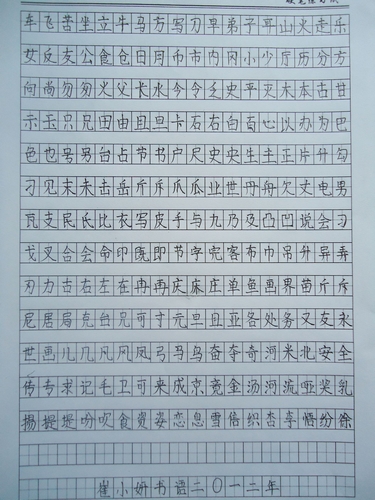 车飞苦坐立牛马方写刀早弟子平山火走乐
女反友公食仓日月币市内闪小少厅历分方
向尚勿匆父父长水今令乏史平灭木本古甘
示玉只兄田由且旦卡石右白百心以办为巴
色也号另台占节书户尺史央生主正片升勾
刁见末未击岳斤斥爪瓜业世丹舟欠丈电男
瓦支民氏比衣写皮手与九乃及凸凹说会刁
戈叉合会命印既即节字完客布巾吊升异弄
刃力古右左在再再庆床庄单鱼画界苗斤斥
尼居局克台兄可寸元旦且亚各处务又友
世画儿几风凤凤弓马乌奋夺奇河米北安全
传专求记毛卫可来成京竞金汤河流哑奖乳
扬提提吩吹食资姿恋息雪倍织杏享悟纷徐
崔小妍书语二〇一二年